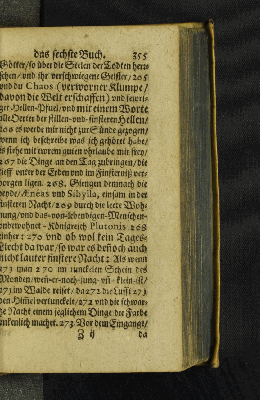 das sechste Buch. 355
Götter/ so über die Seelen der Todten herr-
schen/ und ihr verschwiegene Geister/ 265
und du Chaos (verworner Klumpe/
davon die Welt erschaffen) und feuri-
ger Hellen-Pfuel/ und mit einem Worte
alle Oerter der stillen-und-finsteren Hellen/
266 es werde mir nicht zur Sünde gezogen/
wenn ich beschreibe was ich gehöret habe/
es stehe mit eurem guten vhrlaube mir frey/
267 die Dinge an den Tag zubringen/ die
tieff unter der Erden und im Finsterniß ver-
borgen ligen. 268. Giengen demnach die
beyde/ Æneas und Sibylla, einsam in der
finsteren Nacht/ 269 durch die leere Woh-
nung/ und das-von-lebendigen-Menschen-
unbewohnet-Königreich Plutonis 268
einher: 270 und ob wol kein Tages-
Liecht da war/ so war es dennoch auch
nicht lauter finstere Nacht: Als wenn
273 man 270 im tunckelen Schein des
Monden/ wen-er-noch-jung-uñ-klein-ist/
271 im Walde reiset/ da 272 die Lufft 273
den Himel vertunckelt/ 272 und die schwar-
ze Nacht einem jeglichem Dinge die Farbe
unkenlich machet. 273. Vor dem Eingange/
Z ij da